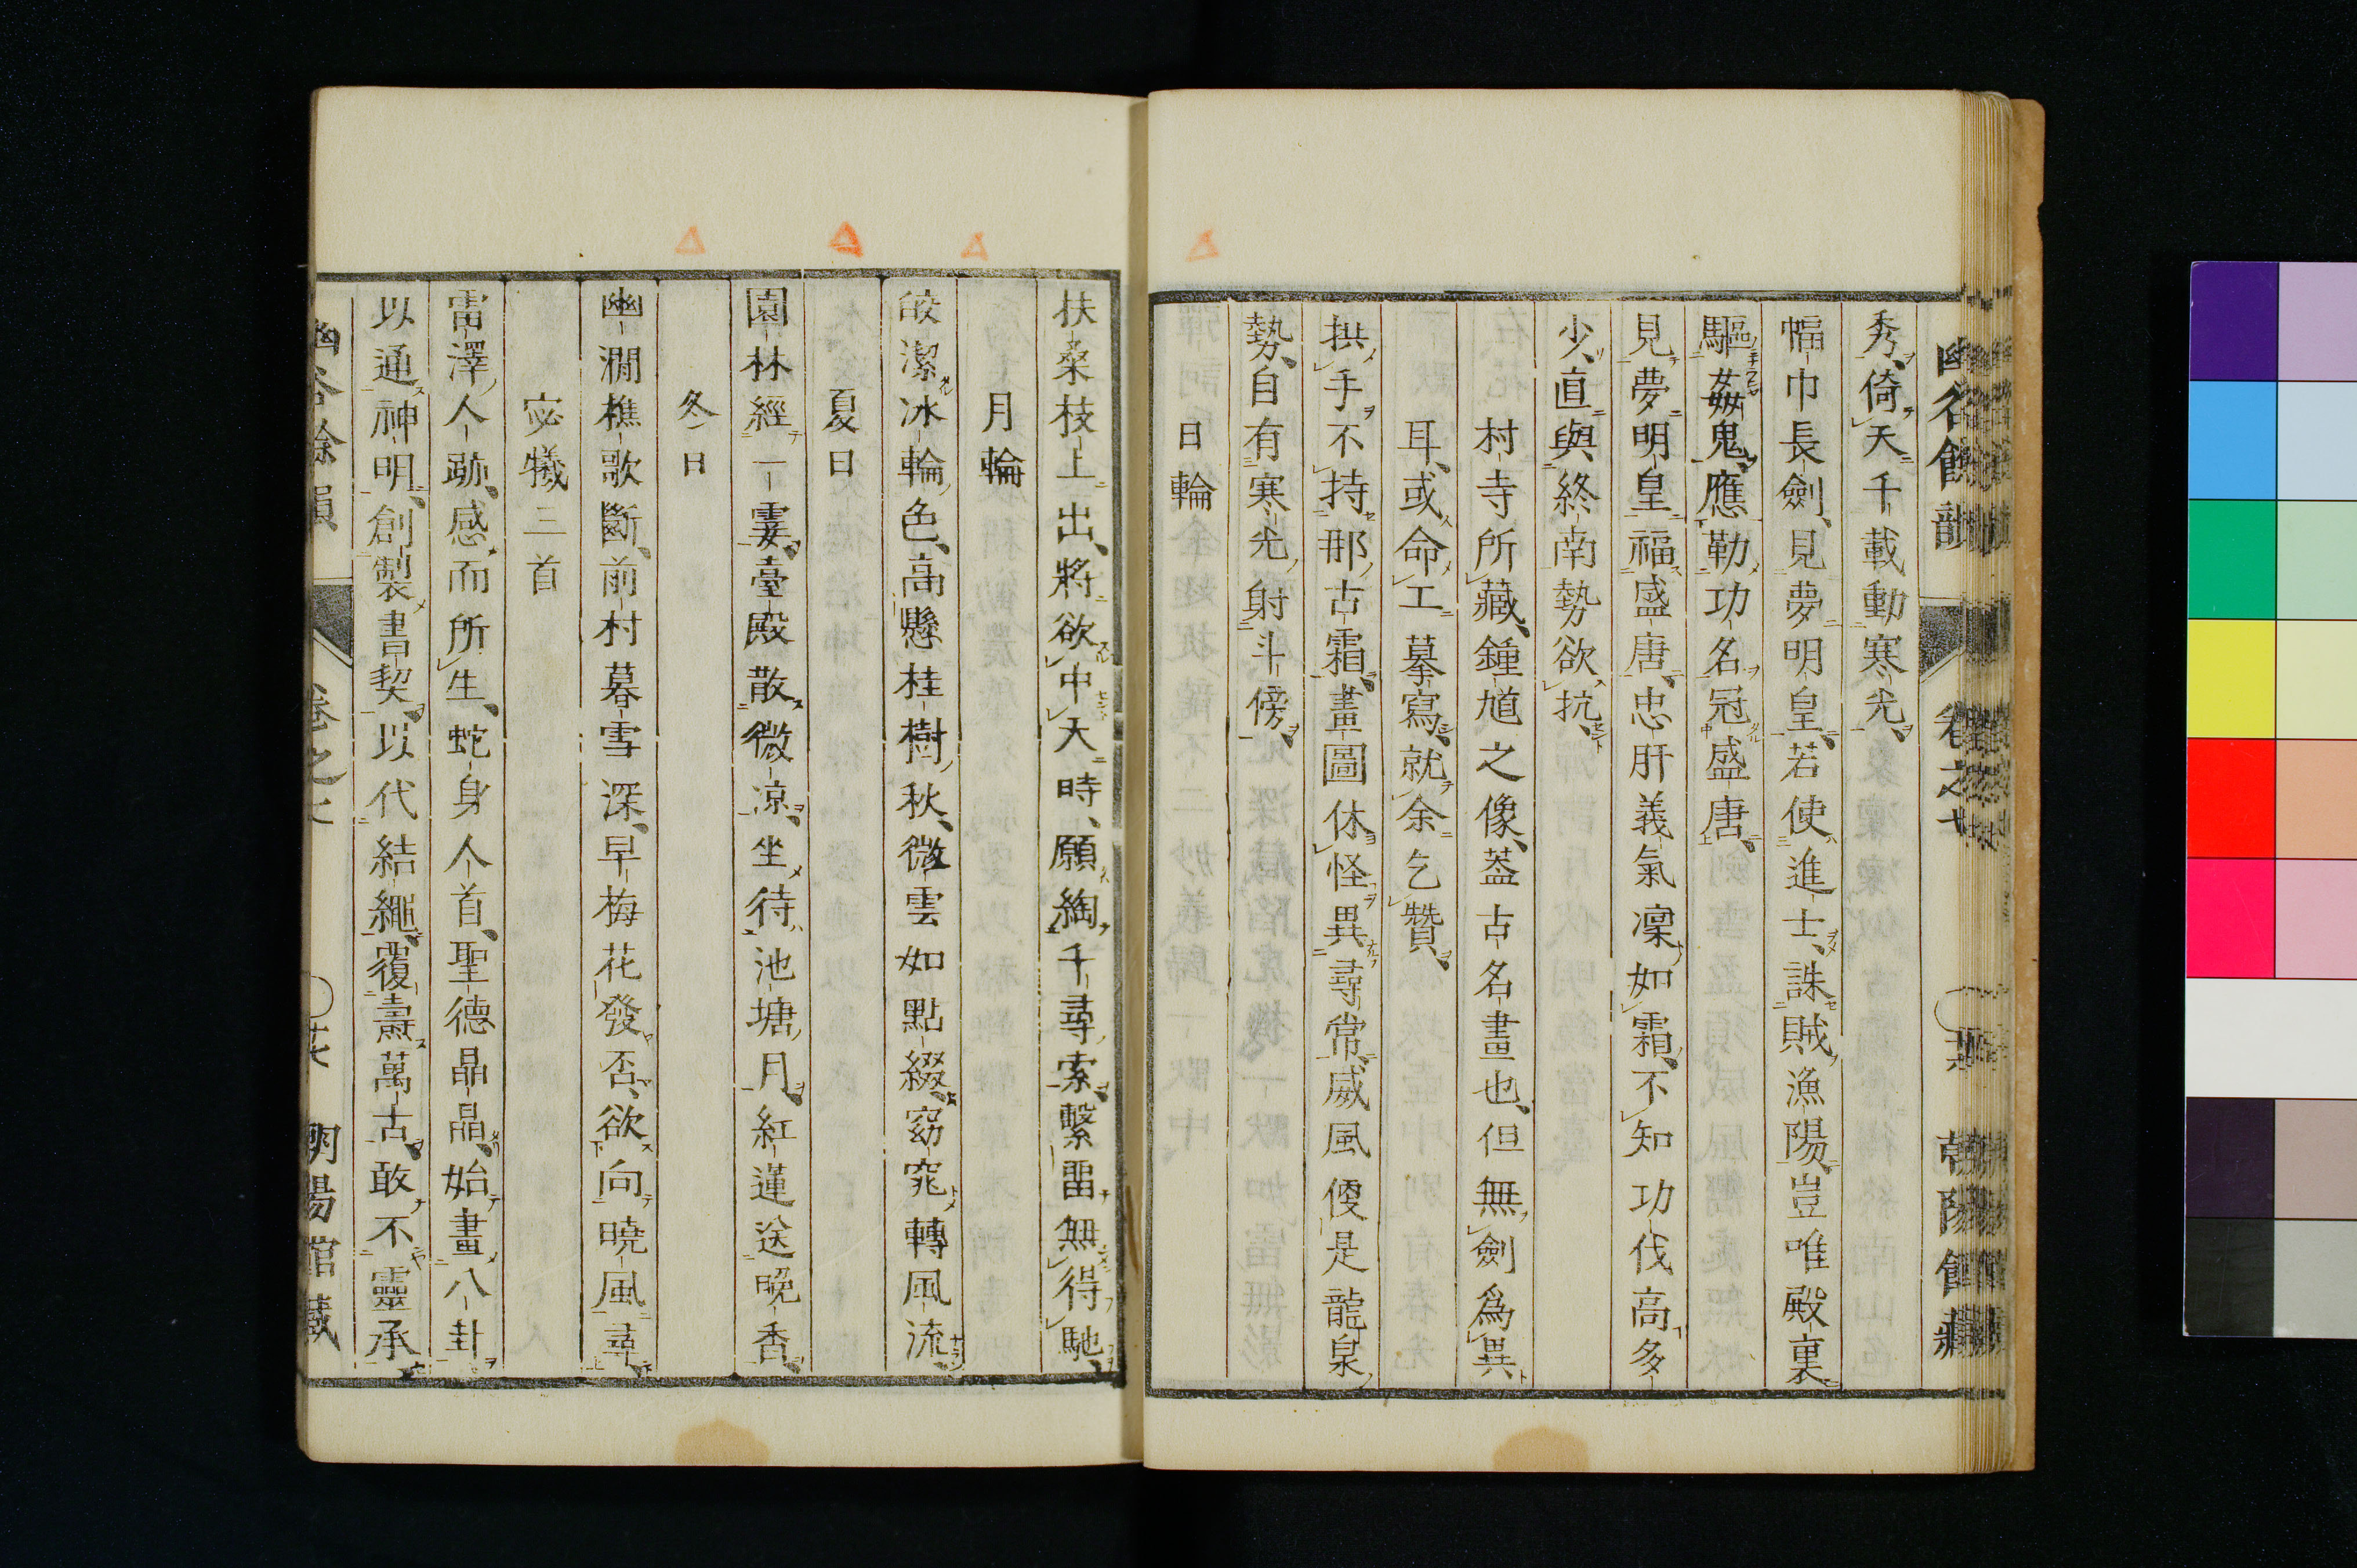 秀、倚天千載動寒光、
幅巾長劍、見夢明皇、若使進士、誅賊漁陽、豈唯殿裏
驅姦鬼、應勒功名冠盛唐、
見夢明皇福盛唐、忠肝義氣凜如霜、不知功伐高多
少、直與終南勢欲抗、
村寺所藏、鍾馗之像、蓋古名畫也、但無劍爲異
耳、或命工摹寫、就余乞贊、
拱手不持邢古霜、畫圖休怪異尋常、威風便是龍泉
勢、自有寒光射斗傍、
日輪
扶桑枝上出、將欲中天時、願綯千尋索、繫畱無得馳、
月輪
皎潔冰輪色、高懸桂樹秋、微雲如點綴、窈窕轉風流、
夏日
園林經一霎、臺殿散微凉、坐待池塘月、紅蓮送晚香、
冬日
幽澗樵歌斷、前村暮雪深、早梅花發否、欲向曉風尋、
宓犧三首
雷澤人跡、感而所生、蛇身人首、聖德晶晶、始畫八卦、
以通神明、創製書契、以代結繩、覆燾萬古、敢不靈承、
幽谷餘韻
卷之七
朝陽館藏